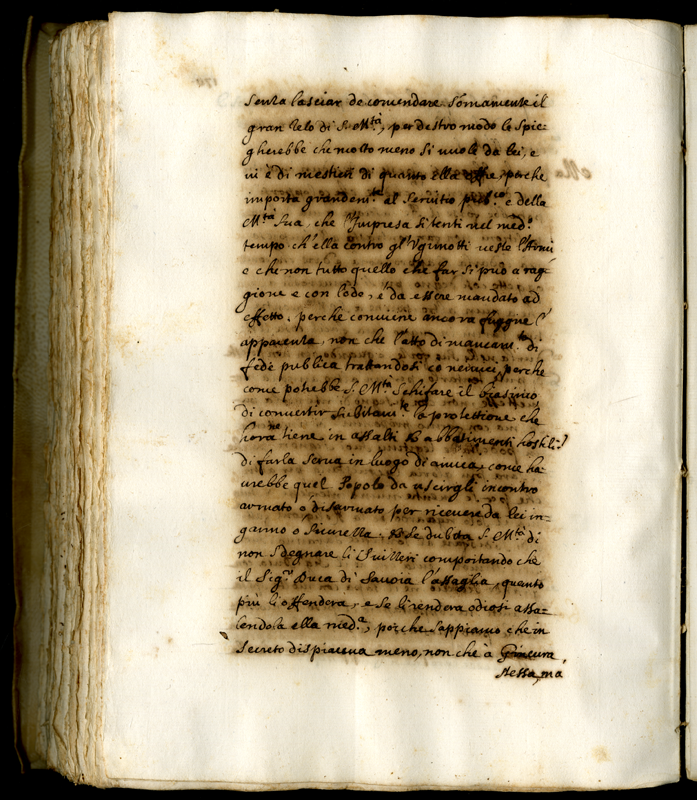 senza lasciar de comendare somamente il
gran Zelo di S. M.tà, per destro modo le spie-
gherebbe che molto meno si vuole da lei, e
vi è di mestieri di quanto ella perche
importa grandem.te al Servitio pub.co e della
M.tà Sua, che l'Impresa si tenti nel med.o
tempo ch'ella contro gl'Vgonotti l'Armi
e che non tutto quello che far si può a rag-
gione e con lode, è da essere mandato ad
effetto, perche conviene ancora fuggire l'
apparenza, non che l'atto di mancare di
fede publica trattandosi co nemici, perche
come potrebbe S. M.tà schifare il biasimo
di convertir subitam.te la protettione che
hora ne tiene in assalti & abbattimenti hostili?
di farla serva in luogo di amica, come ha-
urebbe quel Popolo da uscirgli incontro
armato o disarmato per ricevere da lei in-
ganno o sicurezza. & se dubita S. M.tà di
non sdegnare li comportando che
il Sig.r Duca di Savoia l'assaglia, quanto
più li offenderà, e se li renderà odiosi assa-
lendola ella med.a, poiche sappiamo che in
secreto dispiaceva meno, non che à Gineura
stessa, ma